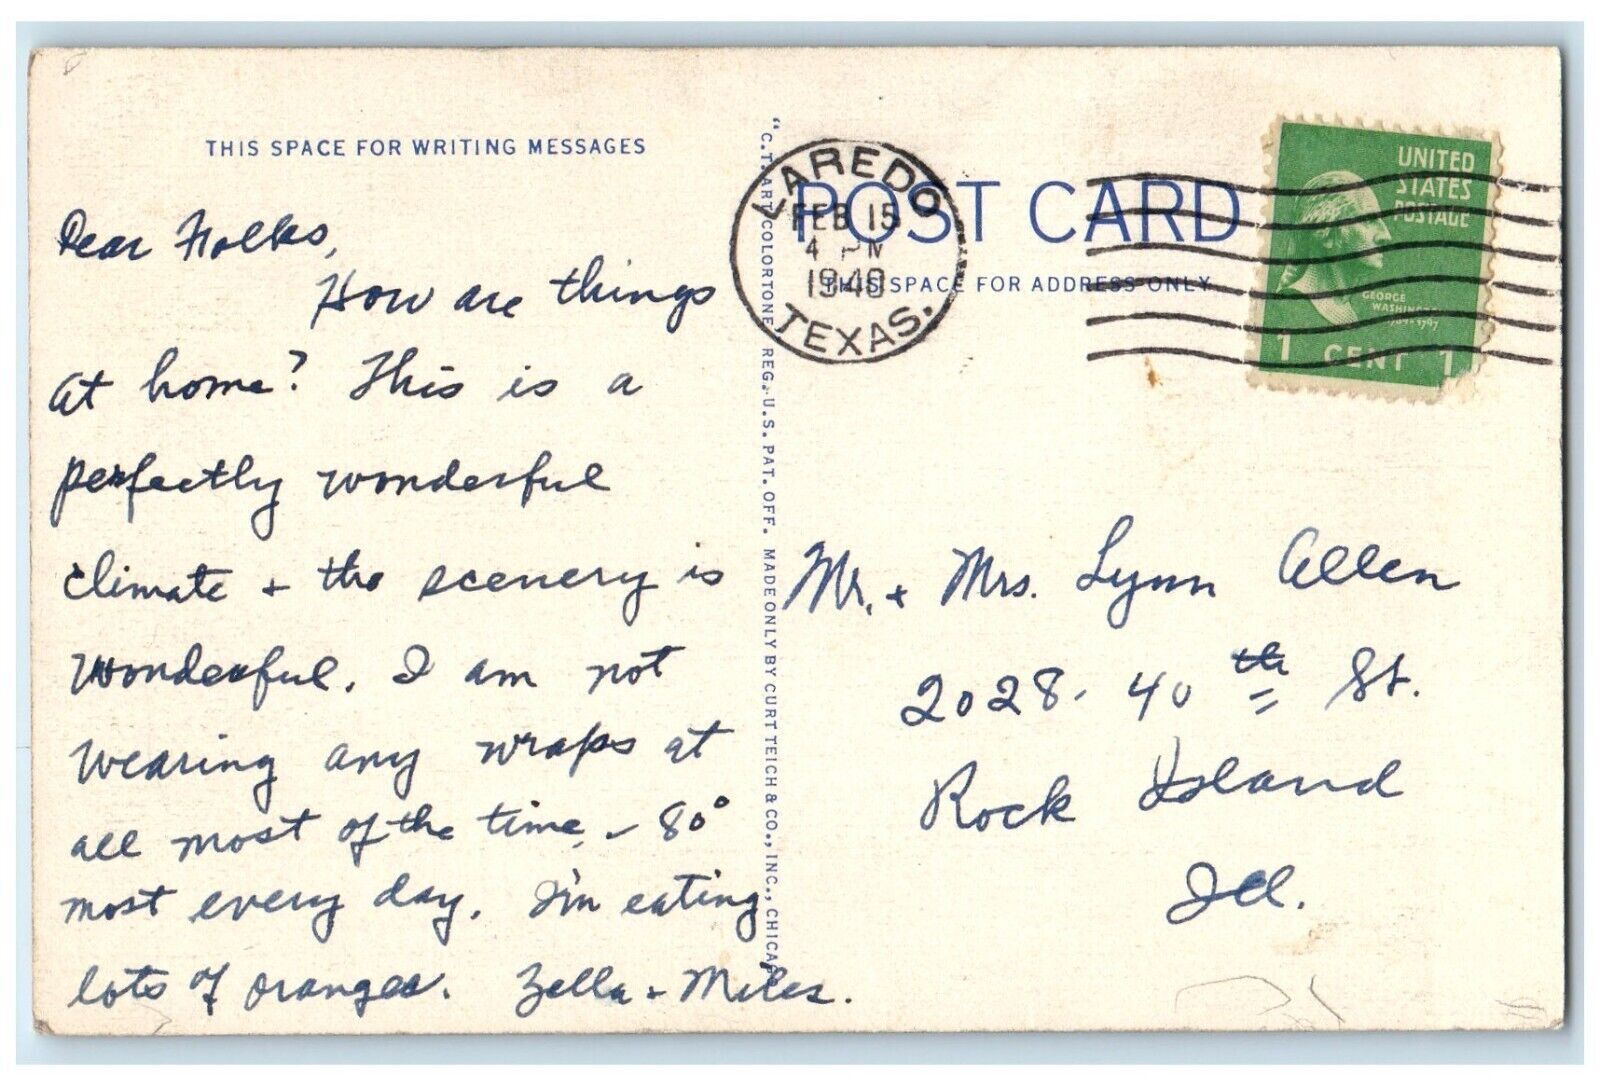 THIS SPACE FOR WRITING MESSAGES
Dear Folks,
How are things
at home? This is a
perfectly wonderful
climate + the scenery is
wonderful. I am not
wearing any wraps at
all most of the time, - 80°
most every day. I'm eating
lots of oranges. Zella + Miles.
"C.T. ART-COLORTONE" REG. U.S. PAT. OFF. MADE ONLY BY CURT TEICH & CO., INC., CHICA
LAREDO
FEB 15
4 PM
1940
TEXAS.
POST CARD
THIS SPACE FOR ADDRESS ONLY
UNITED
STATES
POSTAGE
GEORGE
WASHINGTON
1789-1797
1 CENT 1
Mr. + Mrs. Lynn Allen
2028 - 40th St.
Rock Island
Ill.